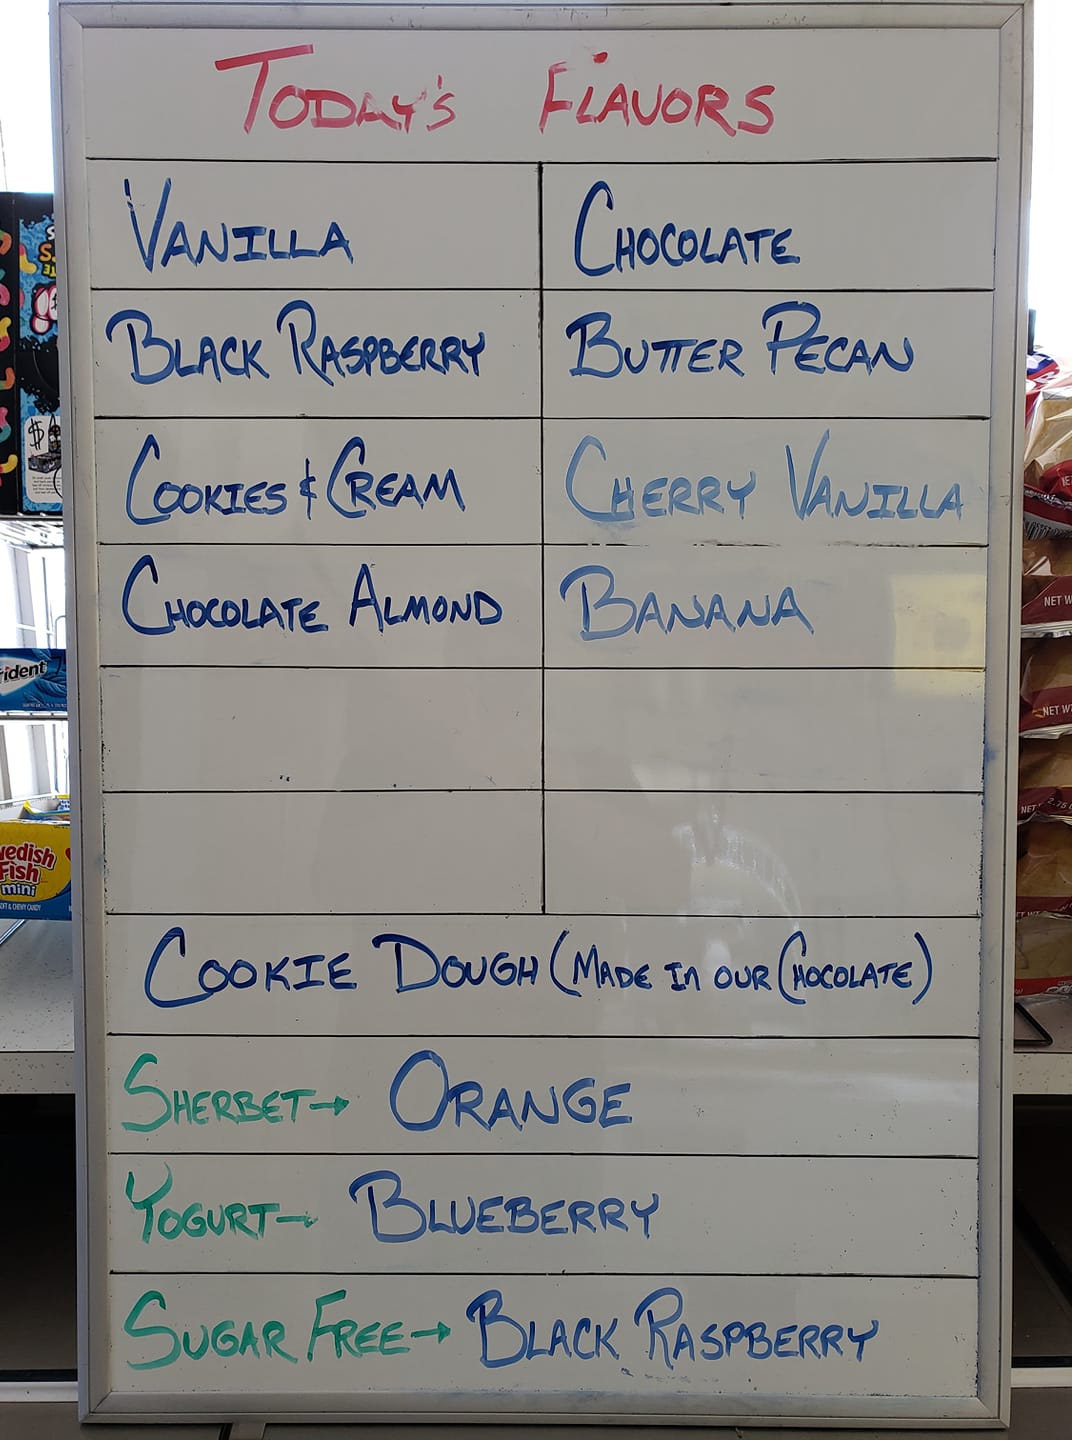 TODAY'S FLAVORS
VANILLA CHOCOLATE
BLACK RASPBERRY BUTTER PECAN
COOKIES & CREAM CHERRY VANILLA
CHOCOLATE ALMOND BANANA
COOKIE DOUGH (MADE IN OUR CHOCOLATE)
SHERBET → ORANGE
YOGURT → BLUEBERRY
SUGAR FREE → BLACK RASPBERRY
rident
wedish
Fish
mini
SOFT & CHEWY CANDY
NET W
NET W
NET
2.75